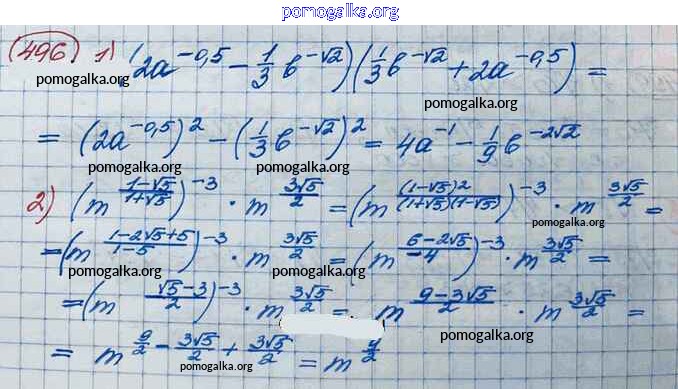 pomogalka.org
496 1) (2a^{-0,5} - \frac{1}{3} b^{-\sqrt{2}}) (\frac{1}{3} b^{-\sqrt{2}} + 2a^{-0,5}) =
pomogalka.org
pomogalka.org
= (2a^{-0,5})^2 - (\frac{1}{3} b^{-\sqrt{2}})^2 = 4a^{-1} - \frac{1}{9} b^{-2\sqrt{2}}
pomogalka.org pomogalka.org
2) (m^{\frac{1-\sqrt{5}}{1+\sqrt{5}}})^{-3} · m^{\frac{3\sqrt{5}}{2}} = (m^{\frac{(1-\sqrt{5})^2}{(1+\sqrt{5})(1-\sqrt{5})}})^{-3} · m^{\frac{3\sqrt{5}}{2}} =
pomogalka.org
= (m^{\frac{1-2\sqrt{5}+5}{1-5}})^{-3} · m^{\frac{3\sqrt{5}}{2}} = (m^{\frac{6-2\sqrt{5}}{-4}})^{-3} · m^{\frac{3\sqrt{5}}{2}} =
pomogalka.org pomogalka.org pomogalka.org
= (m^{\frac{\sqrt{5}-3}{2}})^{-3} · m^{\frac{3\sqrt{5}}{2}} = m^{\frac{9-3\sqrt{5}}{2}} · m^{\frac{3\sqrt{5}}{2}} =
pomogalka.org
= m^{\frac{9}{2} - \frac{3\sqrt{5}}{2} + \frac{3\sqrt{5}}{2}} = m^{\frac{9}{2}}
pomogalka.org